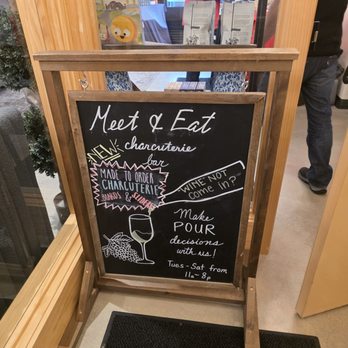 Meet & Eat
NEW!
charcuterie
bar
MADE TO ORDER
CHARCUTERIE
BOARDS &
"WINE NOT
COME IN?"
Make
POUR
decisions
with us!
Tues - Sat from
11a - 8p